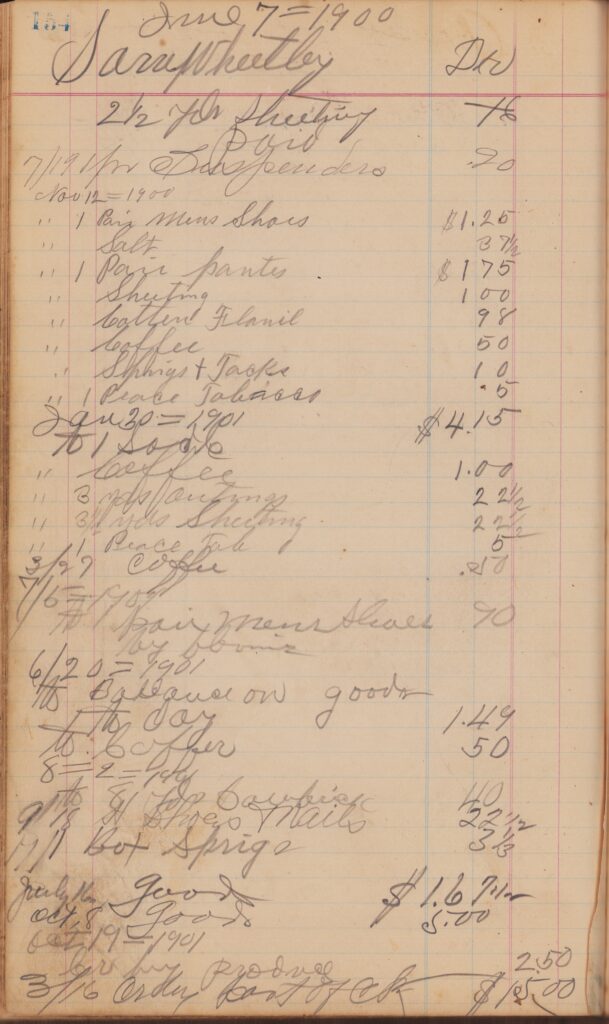 154
June 7=1900
Sam Wheetley Dr
2 1/2 yds Sheeting 18
Paid
7/19 1 pr Suspenders .20
Nov 12=1900
" 1 Pair Mens Shoes $1.25
" Salt 37 1/2
" 1 Pair pantes $175
" Sheeting 100
" Cotten Flanil 98
" Coffee 50
" Sprigs + Tacks 10
" 1 Peace Tobacco .5
Jan 20=1901 $4.15
to 1
" Coffee 1.00
" 3 yds outings 22 1/2
" 3 yds Sheeting 22 1/2
" 1 Peace Tob 5
3/27 Coffee .50
to pair Mens Shoes 90
by
6/20=1901
to Balance on goods
to day 1.49
to Coffee 50
8=2=1901
to 8 yds 40
9/18 Shoes Nails 22 1/2
1 Box Sprigs
July goods $1.67 1/2
Oct, 8 goods 5.00
Oct 19=1901
by produce 2.50
3/16 Order part of Ck $15.00